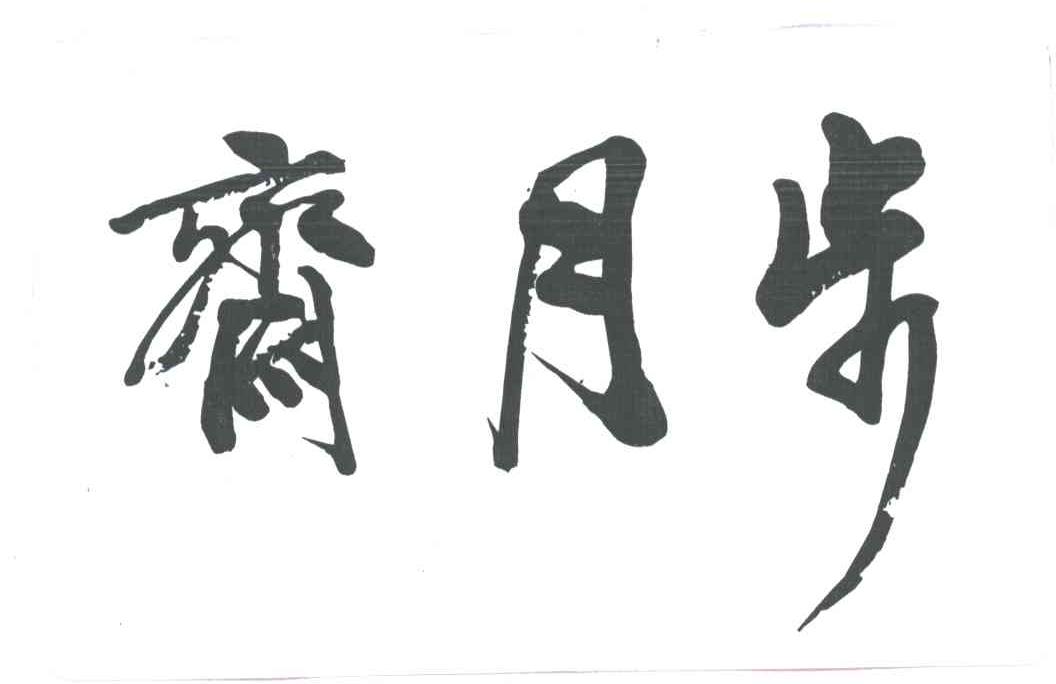 步月齋